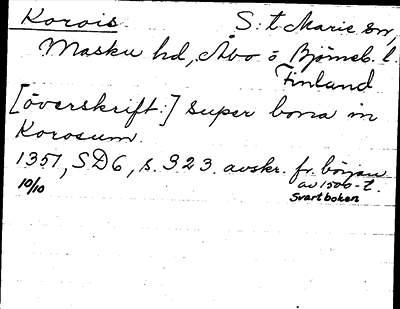 Korois. S:t Marie sn,
Masku hd, Åbo o Björneb. l.
Finland
[överskrift:] super bona in
Korosum.
1351, SD6, s. 323. avskr. fr. början
10/10 av 1500-t.
Svartboken